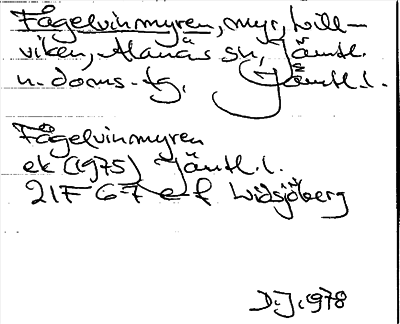 Fågelvinmyren, myr, Lill-
viken, Alanäs sn, Jämtl.
n. doms.-tg, Jämtl.l.
Fågelvinmyren
ek (1975) Jämtl.l.
21F 67 e f Widsjöberg
D.J. 1978